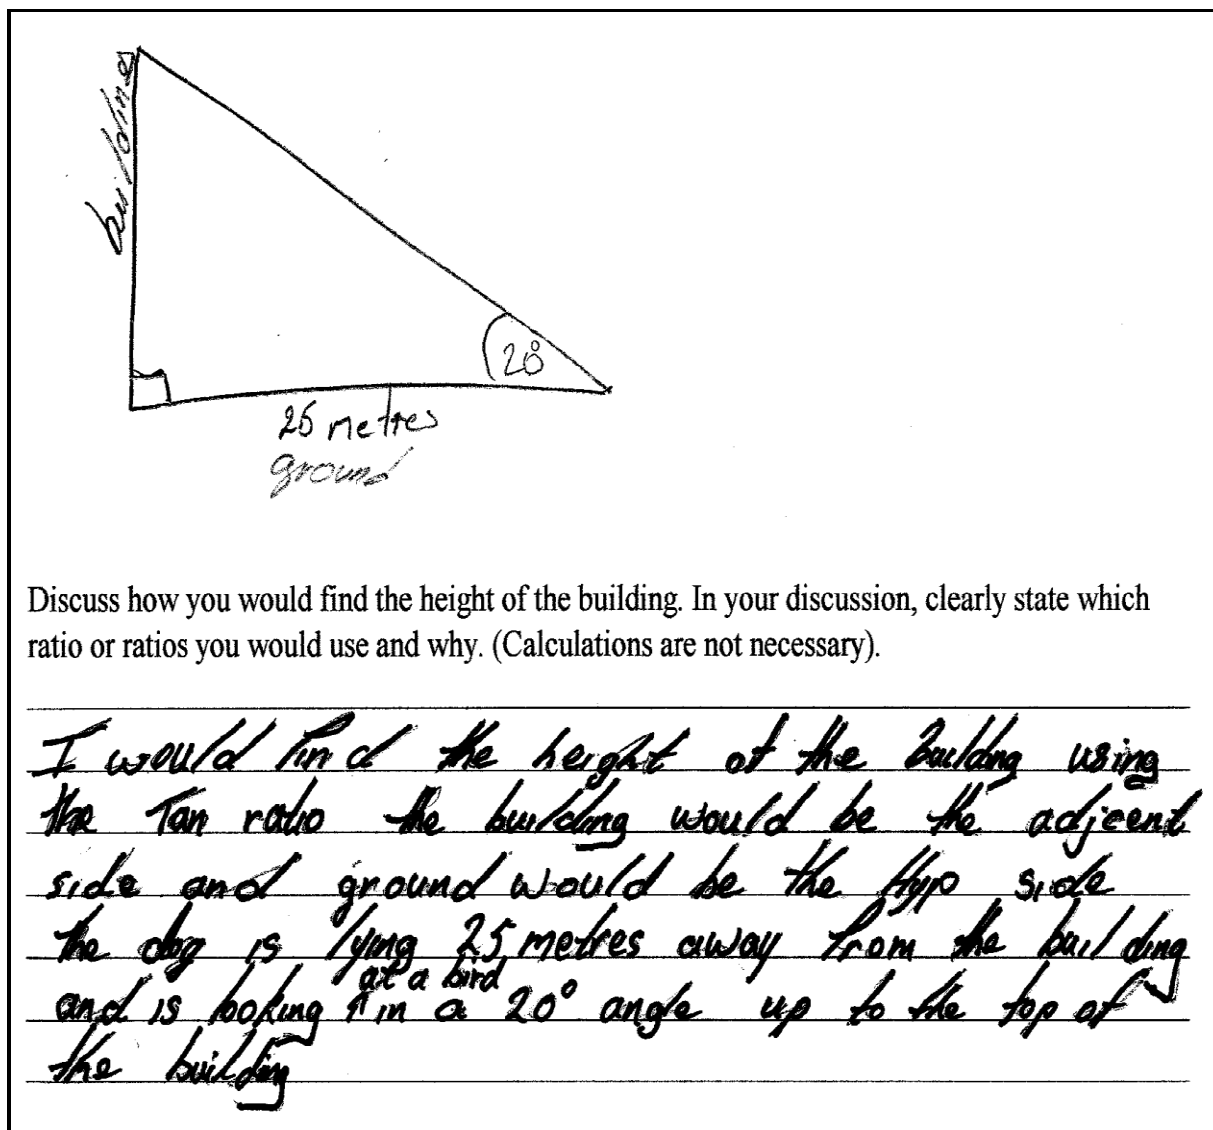 building
20°
25 metres
ground
Discuss how you would find the height of the building. In your discussion, clearly state which
ratio or ratios you would use and why. (Calculations are not necessary).
I would find the height of the building using
the Tan ratio the building would be the adjcent
side and ground would be the Hyp side
the dog is lying 25 metres away from the building
at a bird
and is looking ↑ in a 20° angle up to the top of
the building